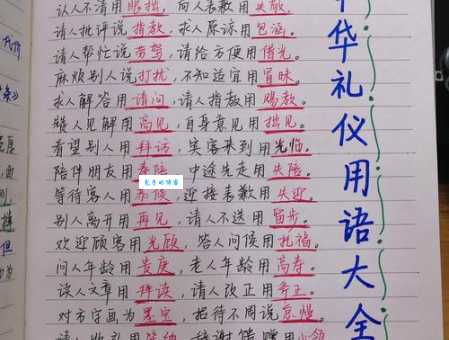 中华礼仪用语大全
认人不清用眼拙，向人表歉用失敬。
请人批评说指教，求人原谅用包涵。
请人帮忙说劳驾，请给方便用借光。
麻烦别人说打扰，不知适宜用冒昧。
求人解答用请问，请人指教用赐教。
赞人见解用高见，自身意见用拙见。
看望别人用拜访，宾客来到用光临。
陪伴朋友用奉陪，中途先走用失陪。
等待客人用恭候，迎接表歉用失迎。
别人离开用再见，请人不送用留步。
欢迎顾客用光顾，答人问候用托福。
问人年龄用贵庚，老人年龄用高寿。
读人文章用拜读，请人改正用斧正。
对方字画为墨宝，招待不周说怠慢。
请人收礼用笑纳，辞谢馈赠用心领。